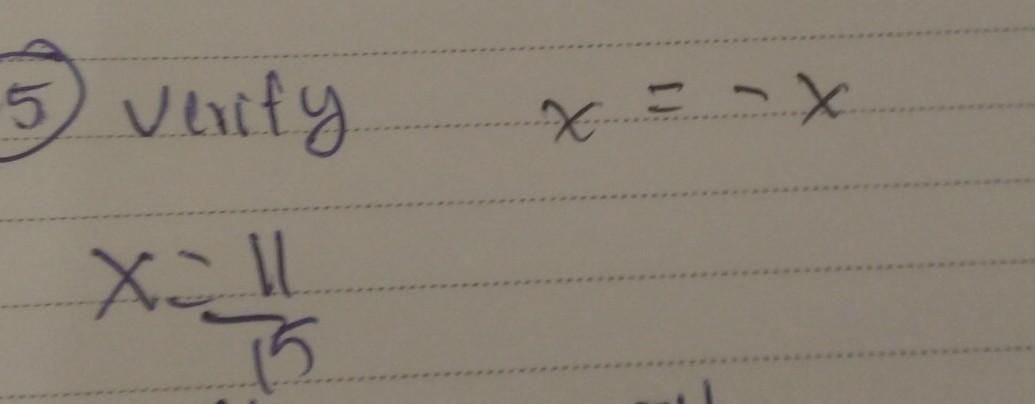 5) Verify x = - x
x = 11/15